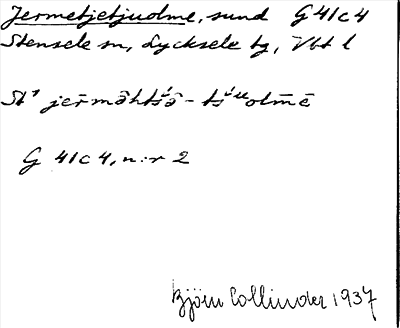 Jermetjetjuolme, sund G 41c4
Stensele sn, Lycksele tg, Vbt l
St¹ jerm̄āhts'ā - ts'ᵘolmē
G 41c4, n:r 2
Björn Collinder 1937